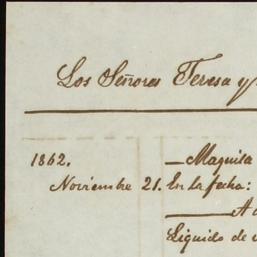 Los Señores Teresa y
1862. — Maquila
Noviembre 21. En la fecha:
Liquido de